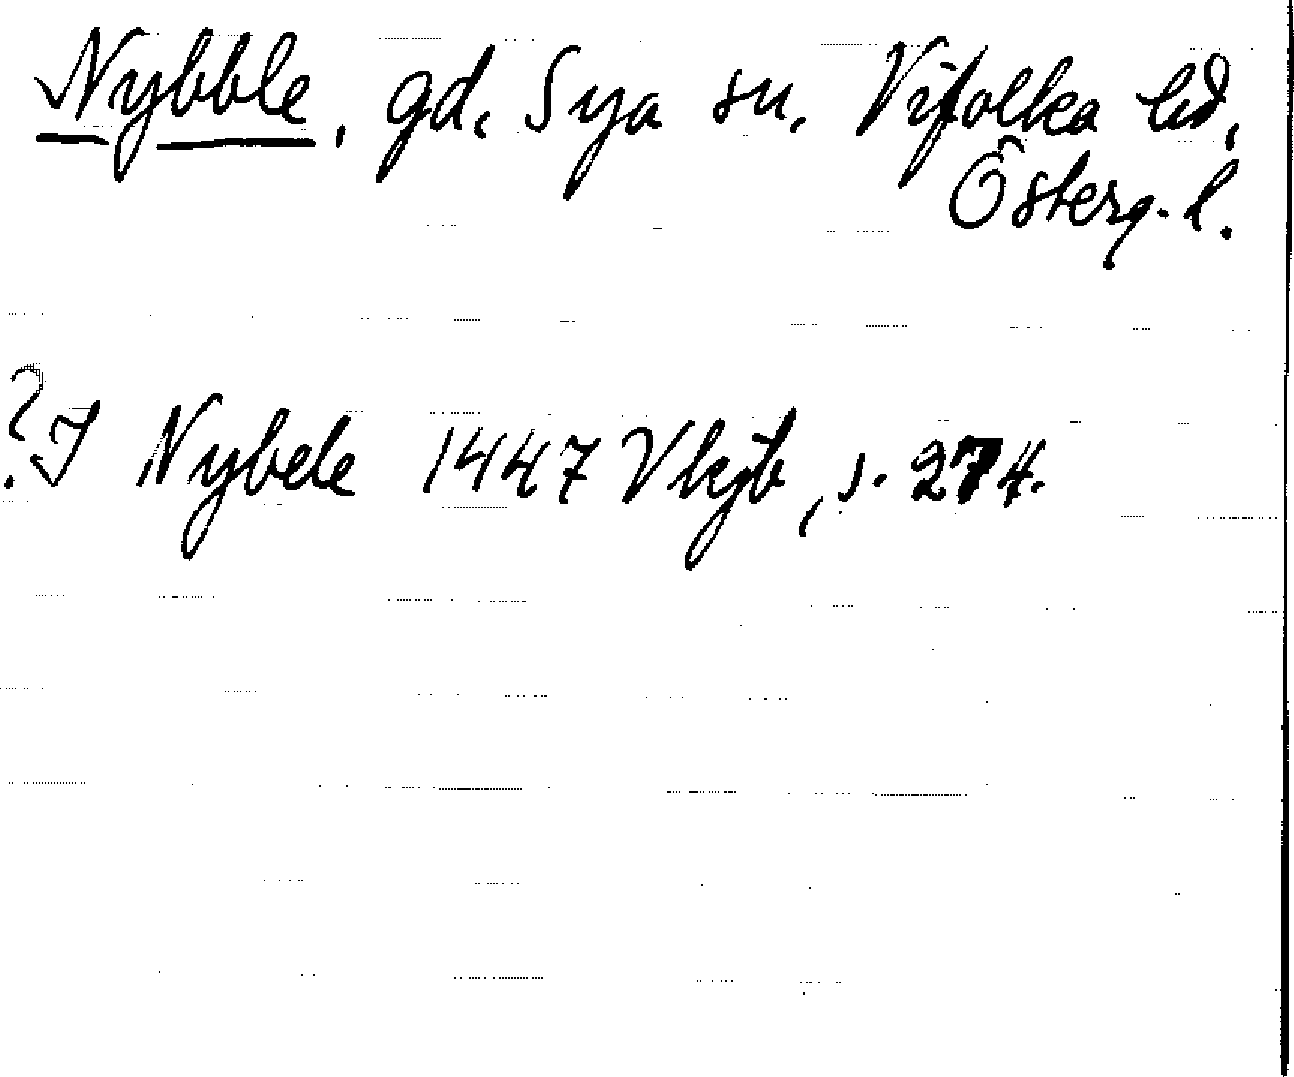 Nybble, gd. Sya sn. Vifolka hd,
Österg. l.
? J Nybele 1447 Vkjb, s. 274.